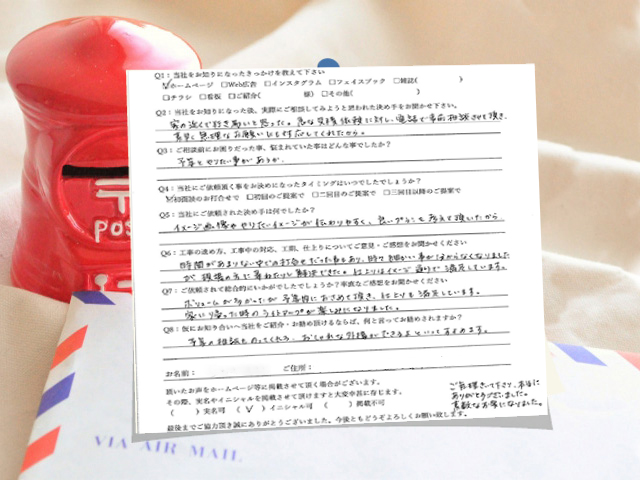 Q1：当社をお知りになったきっかけを教えて下さい
☑ホームページ □Web広告 □インスタグラム □フェイスブック □雑誌( )
□チラシ □看板 □ご紹介( 様) □その他( )
Q2：当社をお知りになった後、実際にご相談してみようと思われた決め手をお聞かせ下さい。
家の近くで行き易いと思った。急な見積依頼に対し、電話で事前相談させて頂き、
素早く無理なお願いにも対応してくれたから。
Q3：ご相談前にお困りだった事、悩まれていた事はどんな事でしたか？
予算とやりたい事があうか。
Q4：当社にご依頼頂く事をお決めになったタイミングはいつでしたでしょうか？
☑初回談のお打合せで □初回のご提案で □二回目のご提案で □三回目以降のご提案で
Q5：当社にご依頼された決め手は何でしたか？
イメージ画像ややりたいイメージが伝わりやすく、良いプランを考えて頂いたから
Q6：工事の進め方、工事中の対応、工期、仕上りについてご意見・ご感想をお聞かせください
時間があまりない中での打合せだった事もあり、時々細かい事が分からなくなりました
が、現場の方に尋ねたりし解決できた。仕上りはイメージ通りで満足しています。
Q7：ご依頼されて総合的にいかがでしたでしょうか？率直なご感想をお聞かせください
ボリュームが多かったが予算内におさめて頂き、仕上りも満足しています。
家に帰った時のライトアップが楽しみになりました。
Q8：仮にお知り合いへ当社をご紹介・お勧め頂けるならば、何と言ってお勧めされますか？
予算の相談ものってくれ、おしゃれな外構にできるよといってすすめます。
お名前： ご住所：
頂いたお声をホームページ等に掲載させて頂く場合がございます。
その際、実名やイニシャルを掲載させて頂けますと大変幸甚に存じます。
( )実名可 (✓)イニシャル可 ( )掲載不可
最後までご協力頂き誠にありがとうございました。今後ともどうぞよろしくお願い致します。
ありがとうございました。
素敵なお家になりました。
〒
POS
VIA AIR MAIL